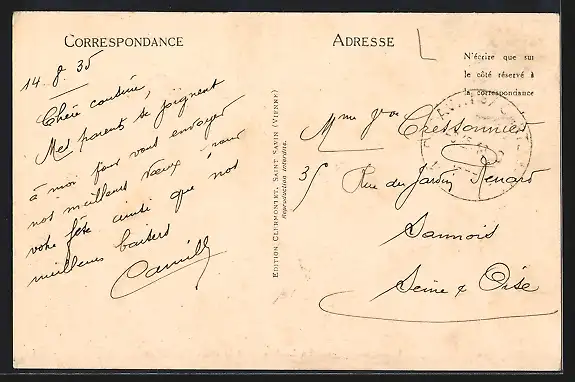 CORRESPONDANCE
14. 8. 35
Chère cousine,
Mes parents se joignent
à moi pour vous envoyer
nos meilleurs vœux pour
votre fête ainsi que nos
meilleurs baisers
Camille
EDITION CLERMONTET, SAINT SAVIN (VIENNE)
Reproduction interdite.
ADRESSE
N'écrire que sur
le côté réservé à
la correspondance
Mme Cressonnier
35 Rue du Jardin Renard
Sannois
Seine & Oise